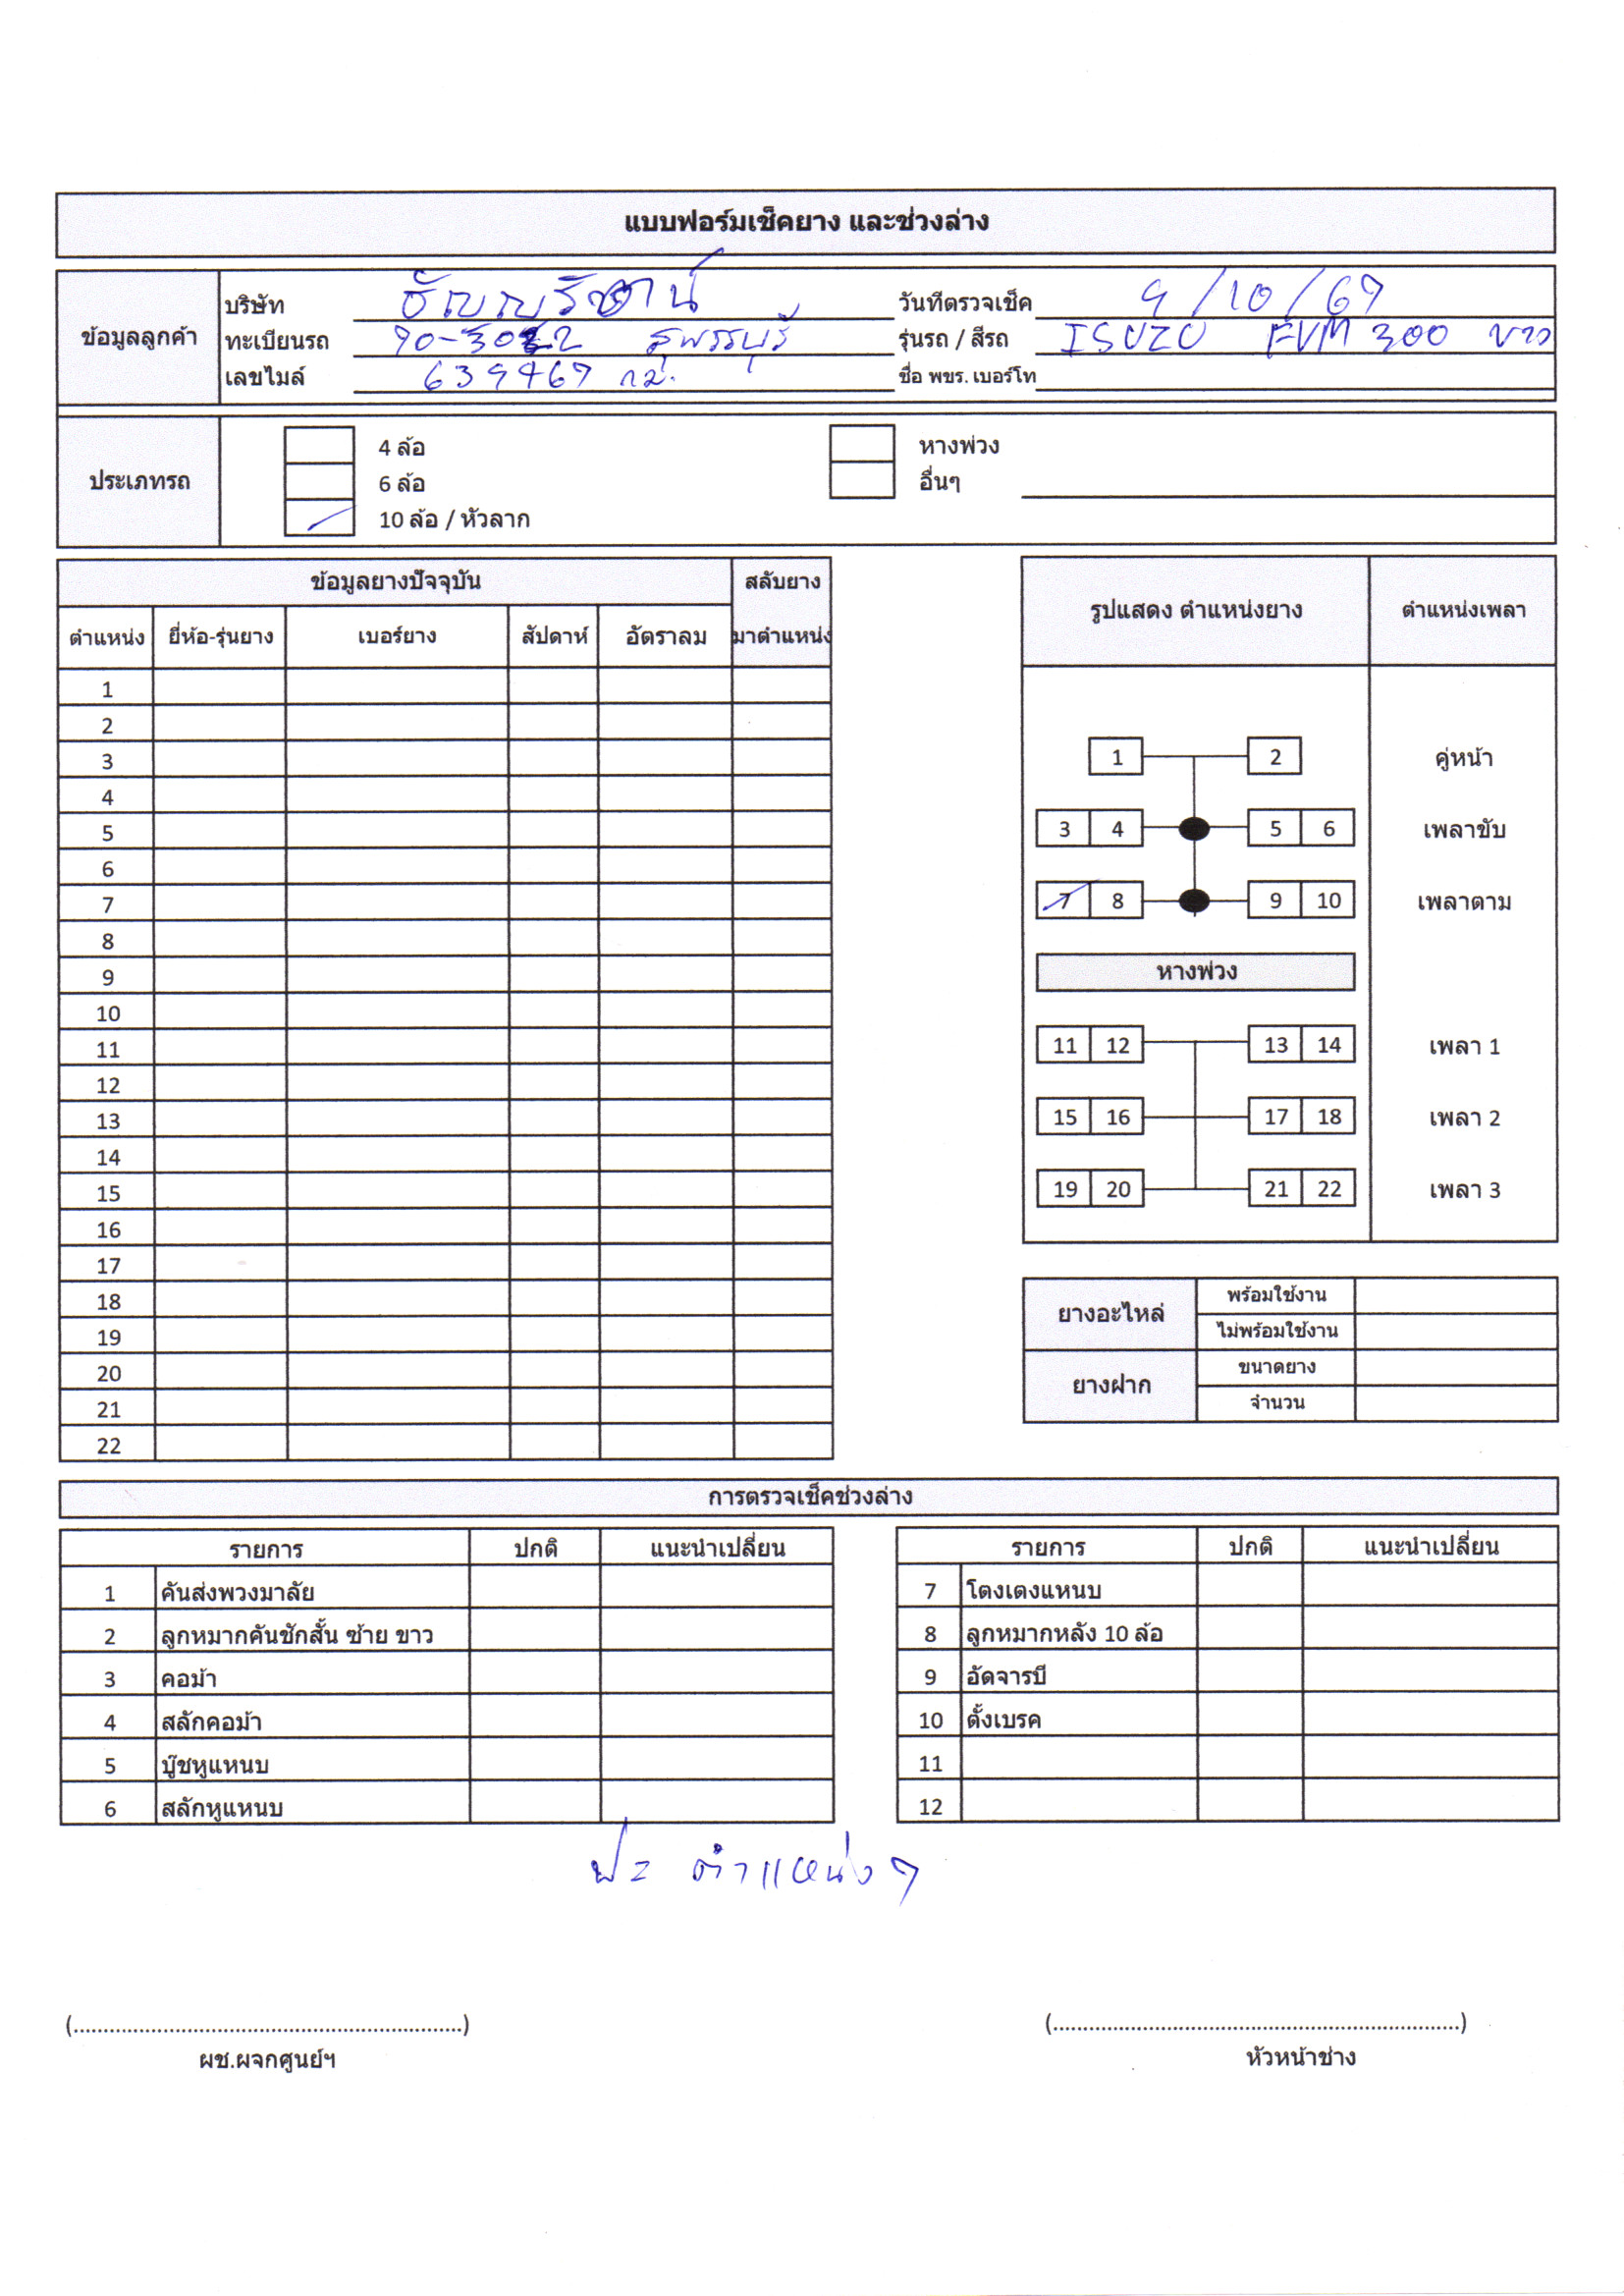 แบบฟอร์มเช็คยาง และช่วงล่าง
ข้อมูลลูกค้า
บริษัท
วันที่ตรวจเช็ค 9/10/67
ทะเบียนรถ 90- สุพรรณบุรี
รุ่นรถ / สีรถ ISUZU FVM 300 ขาว
เลขไมล์ 639467 กม.
ชื่อ พขร. เบอร์โท
ประเภทรถ
4 ล้อ
6 ล้อ
10 ล้อ / หัวลาก
หางพ่วง
อื่นๆ
ข้อมูลยางปัจจุบัน สลับยาง
ตำแหน่ง ยี่ห้อ-รุ่นยาง เบอร์ยาง สัปดาห์ อัตราลม มาตำแหน่ง
1
2
3
4
5
6
7
8
9
10
11
12
13
14
15
16
17
18
19
20
21
22
รูปแสดง ตำแหน่งยาง ตำแหน่งเพลา
1 2 คู่หน้า
3 4 5 6 เพลาขับ
7 8 9 10 เพลาตาม
หางพ่วง
11 12 13 14 เพลา 1
15 16 17 18 เพลา 2
19 20 21 22 เพลา 3
ยางอะไหล่ พร้อมใช้งาน
ไม่พร้อมใช้งาน
ยางฝาก ขนาดยาง
จำนวน
การตรวจเช็คช่วงล่าง
รายการ ปกติ แนะนำเปลี่ยน
1 คันส่งพวงมาลัย
2 ลูกหมากคันชักสั้น ซ้าย ขาว
3 คอม้า
4 สลักคอม้า
5 บู๊ชหูแหนบ
6 สลักหูแหนบ
รายการ ปกติ แนะนำเปลี่ยน
7 โตงเตงแหนบ
8 ลูกหมากหลัง 10 ล้อ
9 อัดจารบี
10 ตั้งเบรค
11
12
ปะ ตำแหน่ง 7
(................................................................)
ผช.ผจกศูนย์ฯ
(................................................................)
หัวหน้าช่าง